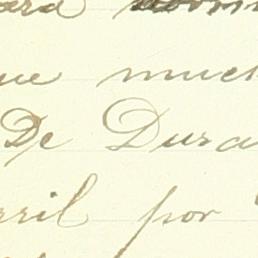 ara
ue much
De Dura
rril por